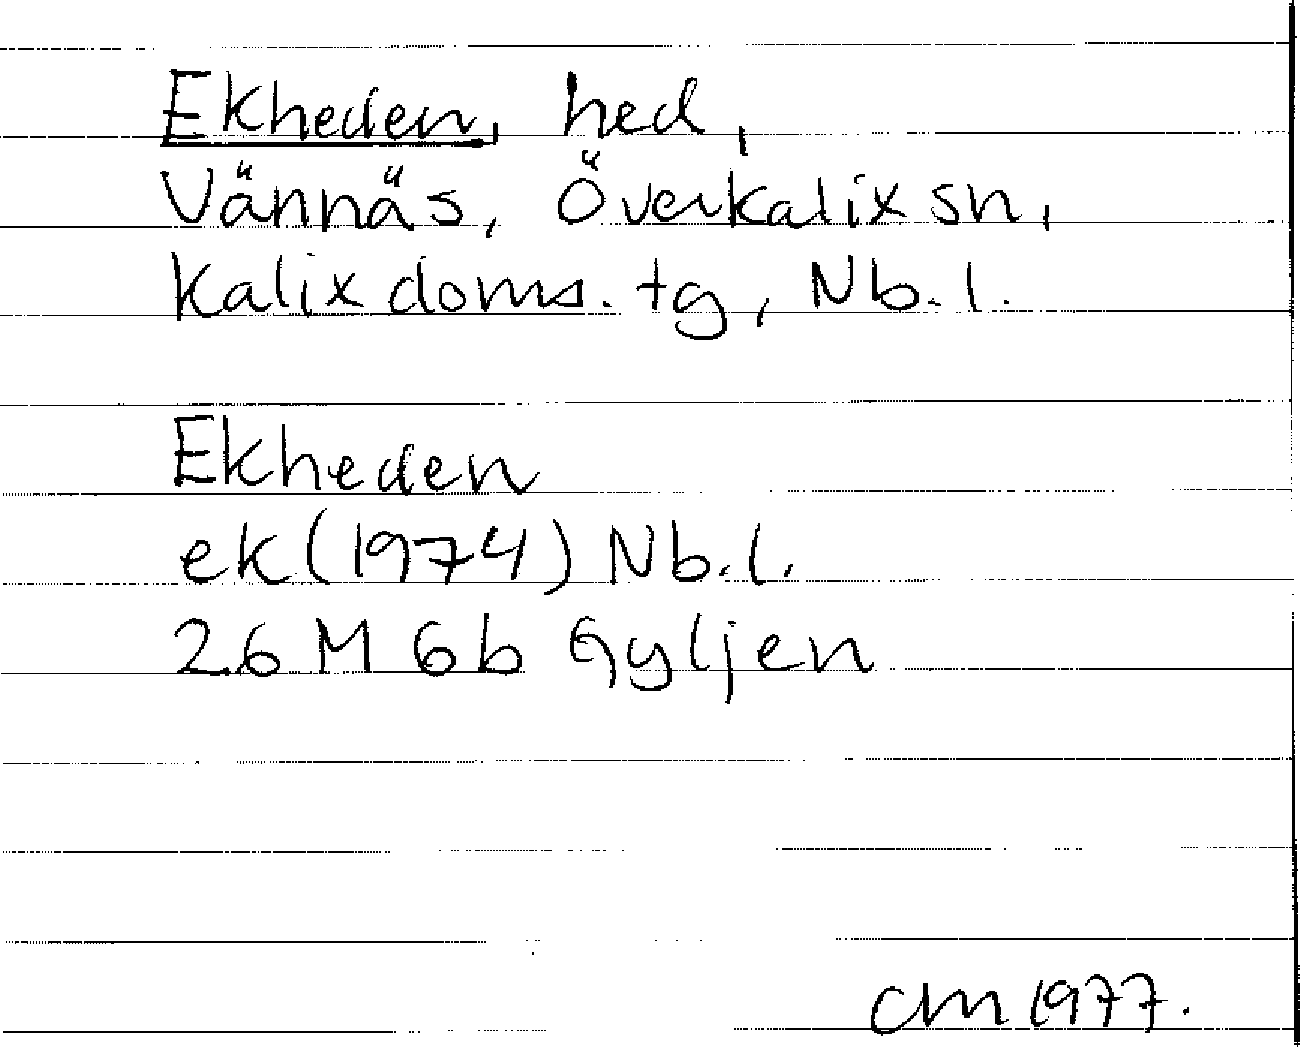 Ekheden, hed,
Vännäs, Överkalix sn,
Kalix doms. tg, Nb. l.
Ekheden
ek (1974) Nb. l.
26 M 6b Gyljen
CM 1977.